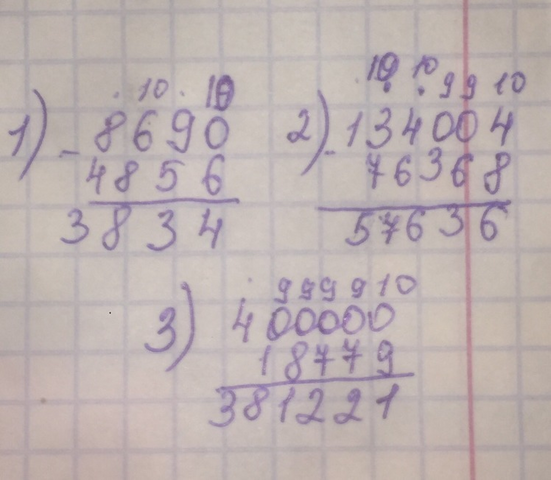 1) . 10 . 10
- 8690
4856
3834
2) 10 10 9 9 10
- 134004
76368
57636
3) . 9 9 9 9 10
400000
18779
381221